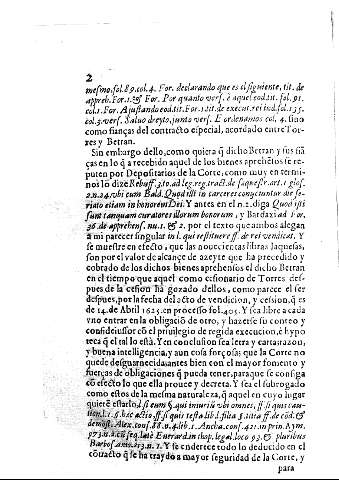 2
mesmo.fol.89.col.4. For. declarando que es el siguiente, tit. de
appreh. For. 1. & For. Por quanto vers. è aquel eod. tit. fol. 91.
col. 1. For. Ajustando eod. tit. For. 1. tit. de execut. rei iud. fol. 135.
col. 3. vers. Saluo dreyto, junto vers. E ordenamos col. 4. sino
como fianças del contracto especial, acordado entre Tor-
res y Betran.
Sin embargo dello, como quiera q̃ dicho Betran y sus fiã
ças en lo q̃ a recebido aquel de los bienes aprehẽsos se re-
puten por Depositarios de la Corte, como muy en termi-
nos lo dize Rebuff. 3. to. ad leg. reg. tract. de sequestr. art. 1. glos.
2. n. 24. vbi cum Bald. Quod isti in carceres conijciuntur die fe-
riato etiam in honorem Dei. Y antes en el n. 2. diga Quod isti
sunt tanquam curatores illorum bonorum, y Bardaxi ad For.
36. de apprehens. nu. 1. & 2. por el texto que ambos alegan
a mi parecer singular in l. qui restituere ff. de rei vendicat. Y
se muestre en efecto, que las nouecientas libras Iaquesas,
son por el valor de alcançe de azeyte que ha precedido y
cobrado de los dichos bienes aprehensos el dicho Betran
en el tiempo que aquel como cesionario de Torres des-
pues de la cesion ha gozado dellos, como parece el ser
despues, por la fecha del acto de vendicion, y cesion, q̃ es
de 14. de Abril 1623. en processo fol. 405. Y sea libre a cada
vno entrar en la obligaciõ de otro, y hazerse su conreo y
confideiussor cõ el priuilegio de regida execucion, è hypo
teca q̃ el tal lo està. Y en conclusion sea letra y carta: razon,
y buena intelligencia, y aun cosa forçosa: que la Corte no
quede desguarnecida, antes bien con el mayor fomento y
fuerças de obligaciones q̃ pueda tener, para que se consiga
cõ efecto lo que ella prouee y decreta. Y sea el subrogado
como estos de la mesma naturaleza, q̃ aquel en cuyo lugar
quiere estarlo,
Barbos.
contracto q̃ se ha traydo a mayor seguridad de la Corte, y
para